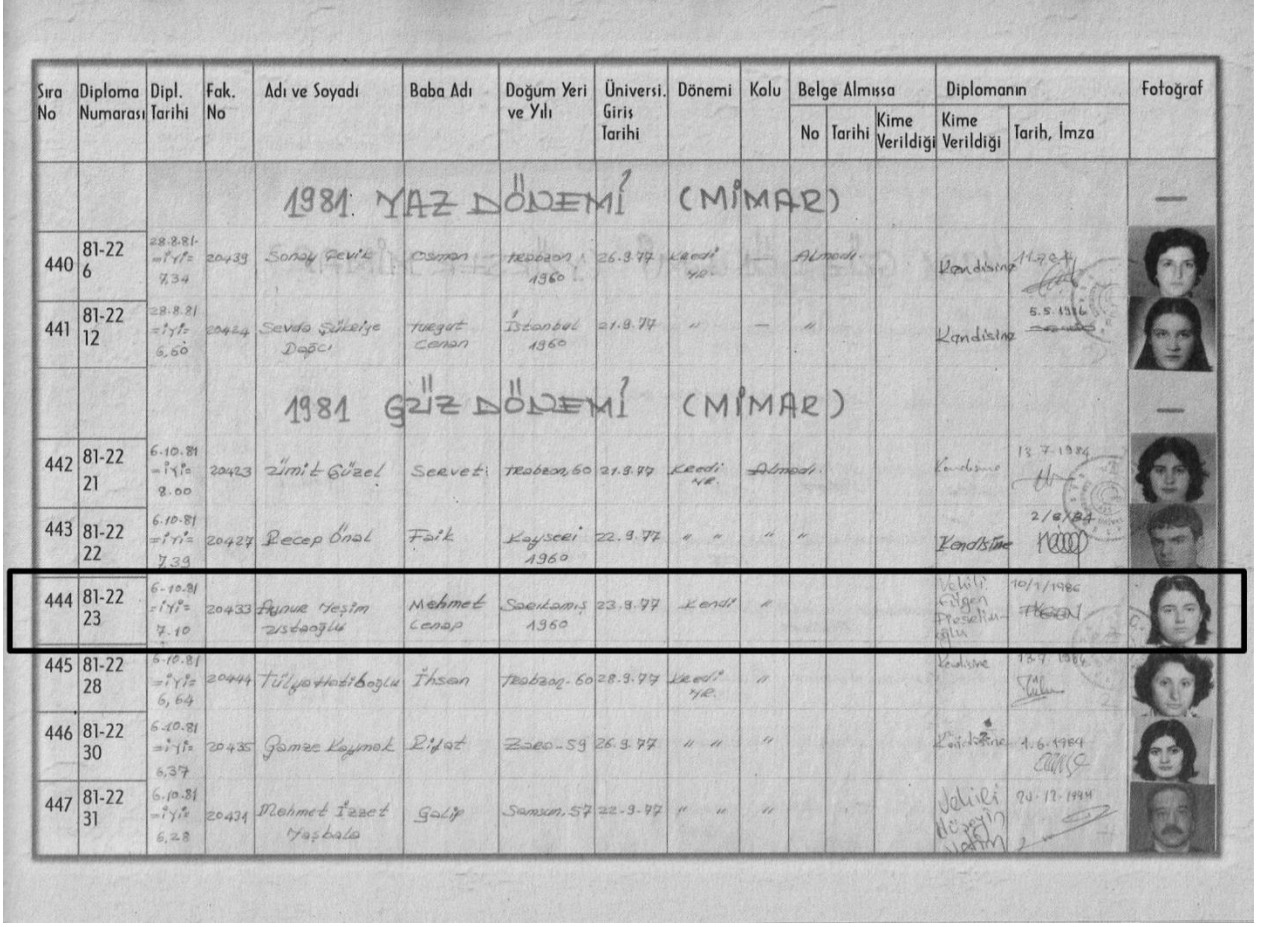 Sıra No Diploma Numarası Dipl. Tarihi Fak. No Adı ve Soyadı Baba Adı Doğum Yeri ve Yılı Üniversi. Giris Tarihi Dönemi Kolu Belge Almıssa No Tarihi Kime Verildiği Diplomanın Kime Verildiği Tarih, İmza Fotoğraf
1981 YAZ DÖNEMİ (MİMAR)
440 81-22 6 28.8.81 =İyi= 7.34 20439 Sonay Çevik Osman Trabzon 1960 26.9.77 Kredi Yr. Almadı. Kendisine
441 81-22 12 28.8.81 =İyi= 6,60 20424 Sevda Şükriye Dağcı Turgut Cenan İstanbul 1960 21.9.77 " — " Kendisine 5.5.1986
1981 GÜZ DÖNEMİ (MİMAR)
442 81-22 21 6.10.81 =İyi= 8.00 20423 Ümit Güzel Servet Trabzon, 60 21.9.77 Kredi Yr. Almadı. Kendisine 13.7.1984
443 81-22 22 6.10.81 =İyi= 7.39 20427 Recep Önal Faik Kayseri 1960 22.9.77 " " " " Kendisine 2/8/84
444 81-22 23 6-10.81 =İyi= 7.10 20433 Yeşim Ustaoğlu Mehmet Cenap Sarıkamış 1960 23.9.77 Kendi " Vekili 10/1/1986
445 81-22 28 6.10.81 =İyi= 6,64 20444 Tülya Hatiboğlu İhsan Trabzon-60 28.9.77 Kredi Yr. " Kendisine
446 81-22 30 6.10.81 =İyi= 6,37 20435 Gamze Kaymak Rifat Zara-59 26.9.77 " " " Kendisine 1.6.1984
447 81-22 31 6.10.81 =İyi= 6,28 20431 Mehmet İzzet Yaşbala Galip Samsun, 57 22-9-77 " " " Vekili Hüseyin